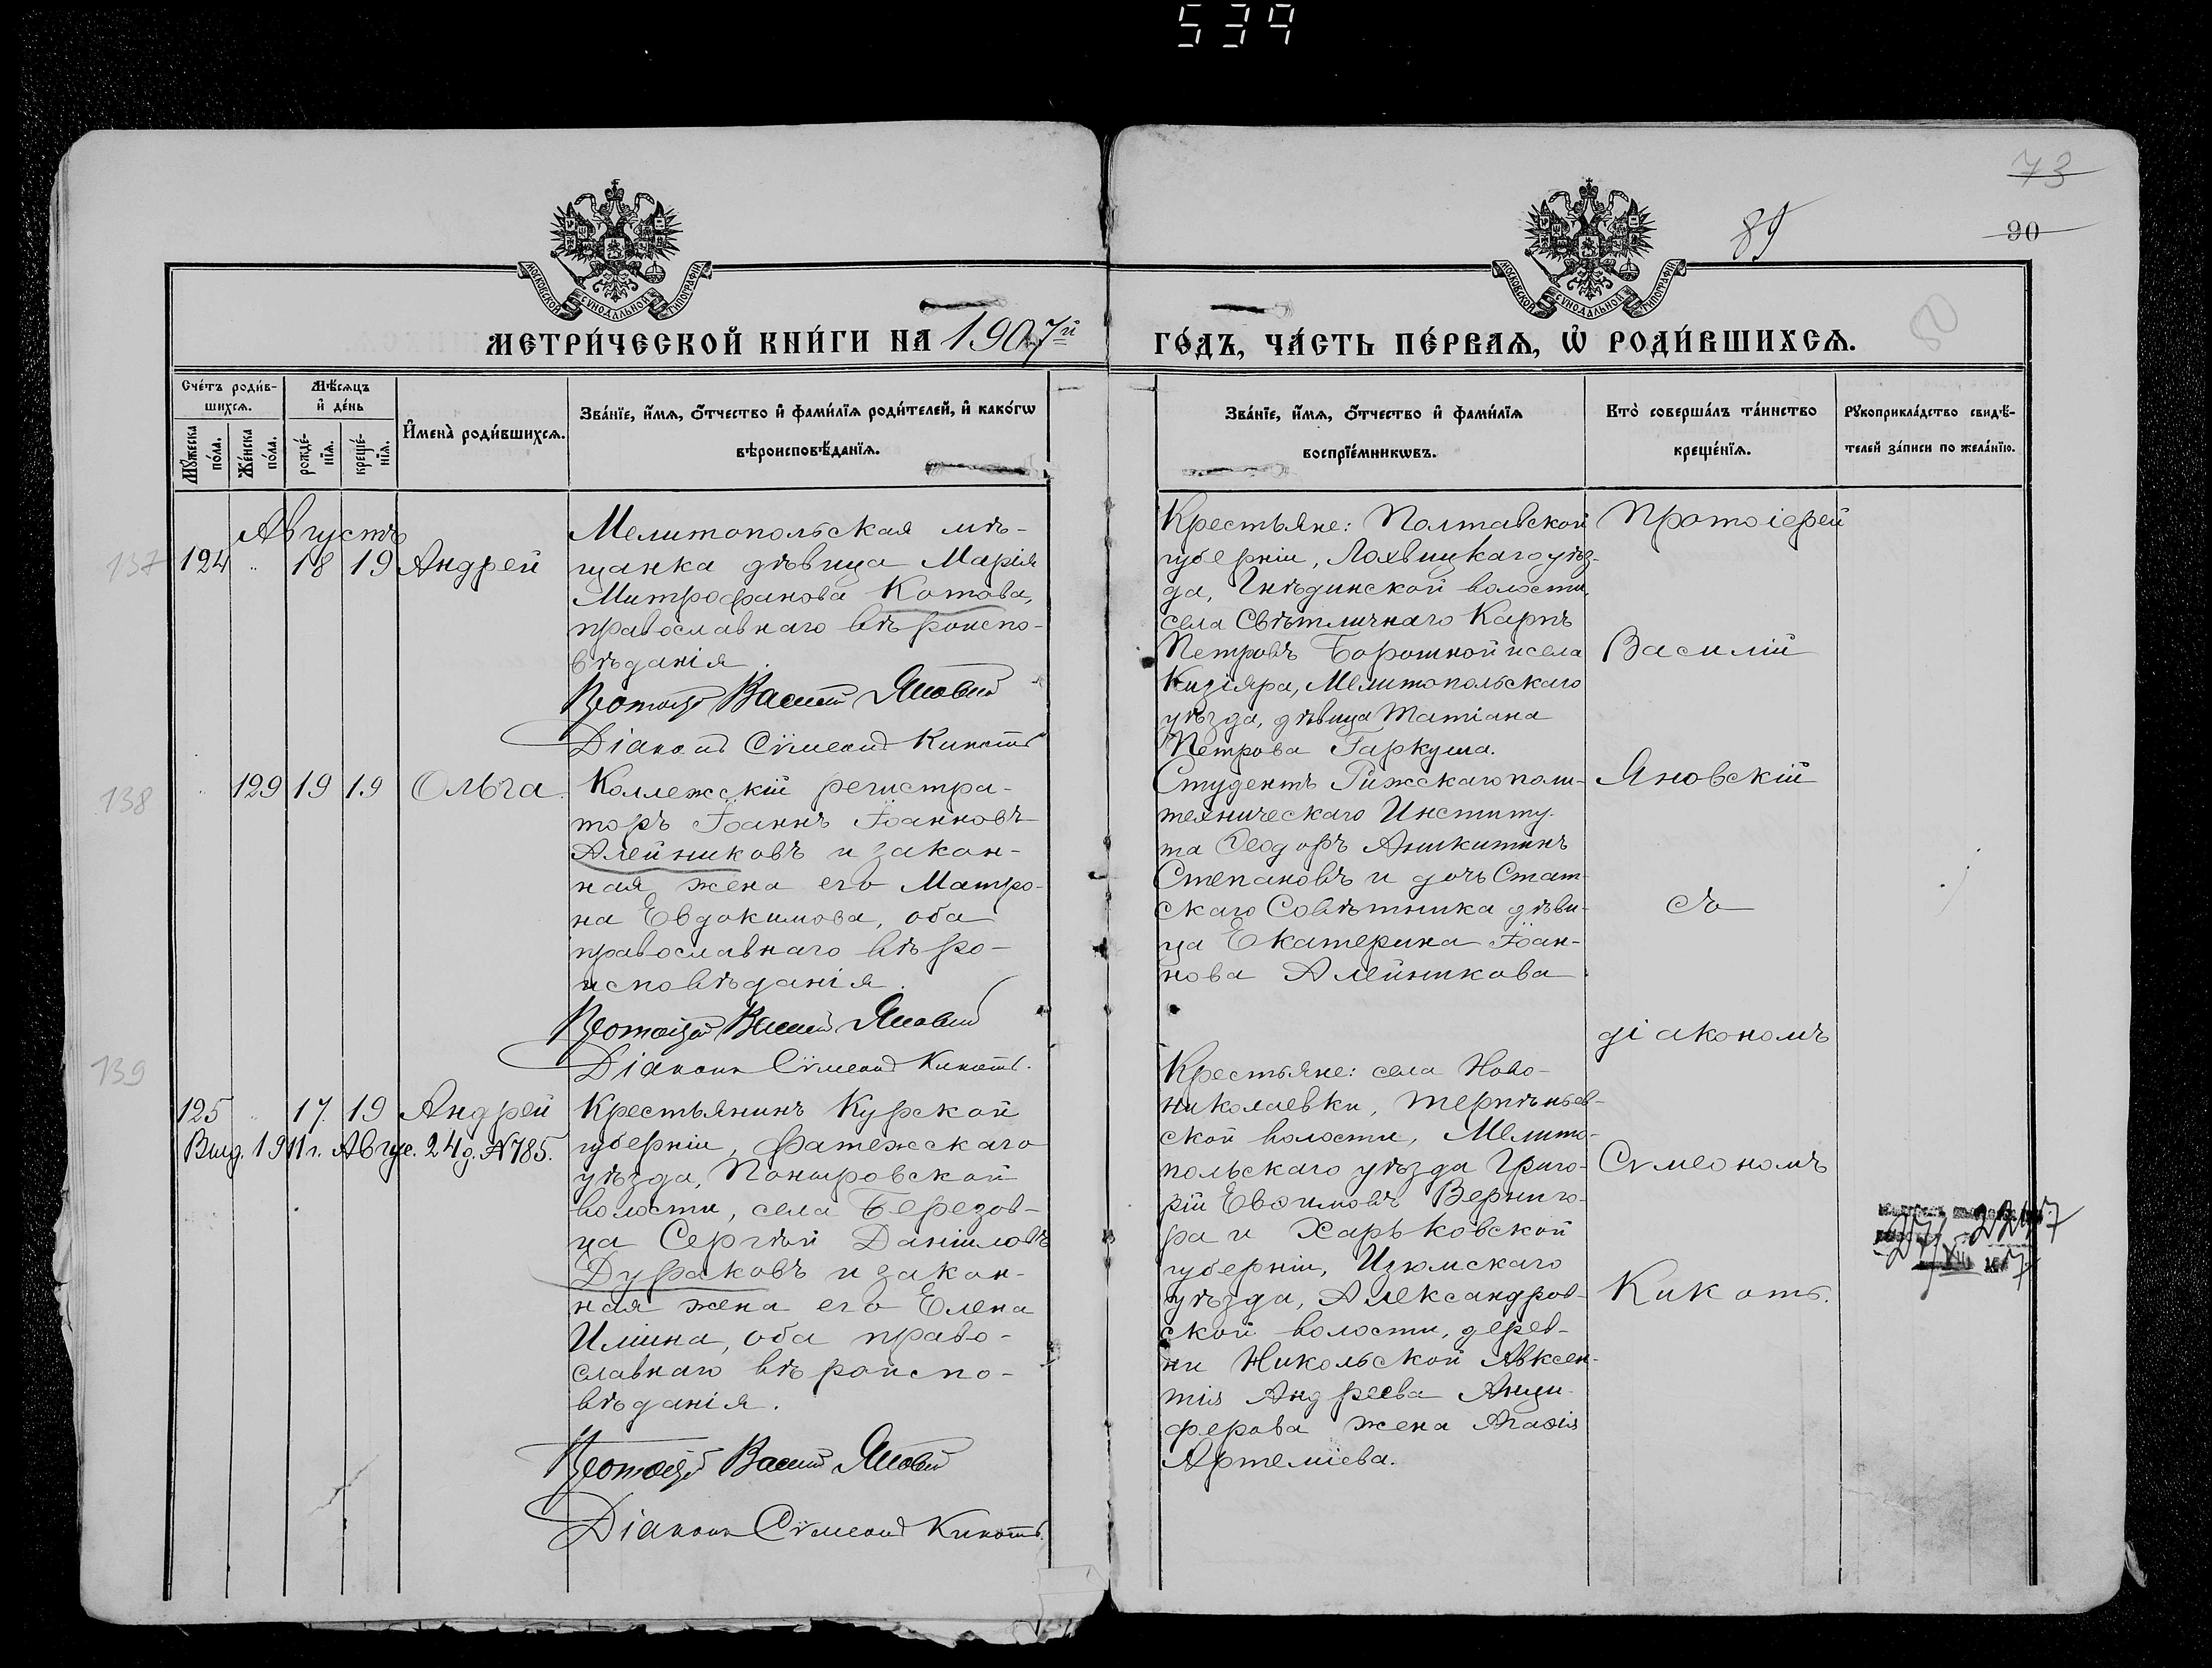 539
73
89
90
МОСКОВСКОЙ СѴНОДАЛЬНОЙ ТИПОГРАФІИ
МОСКОВСКОЙ СѴНОДАЛЬНОЙ ТИПОГРАФІИ
МЕТРИ́ЧЕСКОЙ КНИ́ГИ НА 1907й
ГО́ДЪ, ЧА́СТЬ ПЕ́РВАѦ, Ѡ҆ РОДИ́ВШИХСѦ.
Сче́тъ роди́в-
шихсѧ.
Мѣ́сѧцъ
и҆ де́нь
Мꙋ́жеска
по́ла.
Же́нска
по́ла.
рожде́-
нїѧ.
креще́-
нїѧ.
И҆мена̀ роди́вшихсѧ.
Зва́нїе, и҆́мѧ, ѻ҆́тчество и҆ фами́лїѧ роди́телей, и҆ како́гѡ
вѣроисповѣ́данїѧ.
Зва́нїе, и҆́мѧ, ѻ҆́тчество и҆ фами́лїѧ
воспрїе́мникѡвъ.
Кто̀ соверша́лъ та́инство
креще́нїѧ.
Рꙋкоприкла́дство свидѣ́-
телей за́писи по жела́нїю.
Августъ
137 124 " 18 19 Андрей
Мелитопольская мѣ-
щанка дѣвица Марія
Митрофанова Котова,
православнаго вѣроиспо-
вѣданія.
Протоіерей Василій Яновскій
Діаконъ Сѵмеонъ Кикоть
Крестьяне: Полтавской
губерніи, Лохвицкаго уѣз-
да, Гнѣдинской волости,
села Свѣтличнаго Карпъ
Петровъ Борошной и села
Кизіяра, Мелитопольскаго
уѣзда, дѣвица Татіана
Петрова Гаркуша.
Протоіерей
Василій
Яновскій
съ
діакономъ
Сѵмеономъ
Кикоть.
138 " 129 19 19 Ольга.
Коллежскій регистра-
торъ Іоаннъ Іоанновъ
Алейниковъ и закон-
ная жена его Матро-
на Евдокимова, оба
православнаго вѣро-
исповѣданія.
Протоіерей Василій Яновскій
Діаконъ Сѵмеонъ Кикоть.
Студентъ Рижскаго поли-
техническаго Институ-
та Ѳеодоръ Аникитинъ
Степановъ и дочь Стат-
скаго Совѣтника дѣви-
ца Екатерина Іоан-
нова Алейникова
139 125 " 17. 19 Андрей
Выд. 1911 г. Авгус. 24 д. № 785.
Крестьянинъ Курской
губерніи, Фатежскаго
уѣзда, Поныровской
волости, села Березов-
ца Сергѣй Даніиловъ
Дураковъ и закон-
ная жена его Елена
Иліина, оба право-
славнаго вѣроиспо-
вѣданія.
Протоіерей Василій Яновскій
Діаконъ Сѵмеонъ Кикоть.
Крестьяне: села Ново-
николаевки, Терпѣньев-
ской волости, Мелито-
польскаго уѣзда Григо-
рій Евѳимовъ Верниго-
ра и Харьковской
губерніи, Изюмскаго
уѣзда, Александров-
ской волости, дерев-
ни Никольской Авксен-
тія Андреева Анци-
ферова жена Агаѳія
Артеміева.